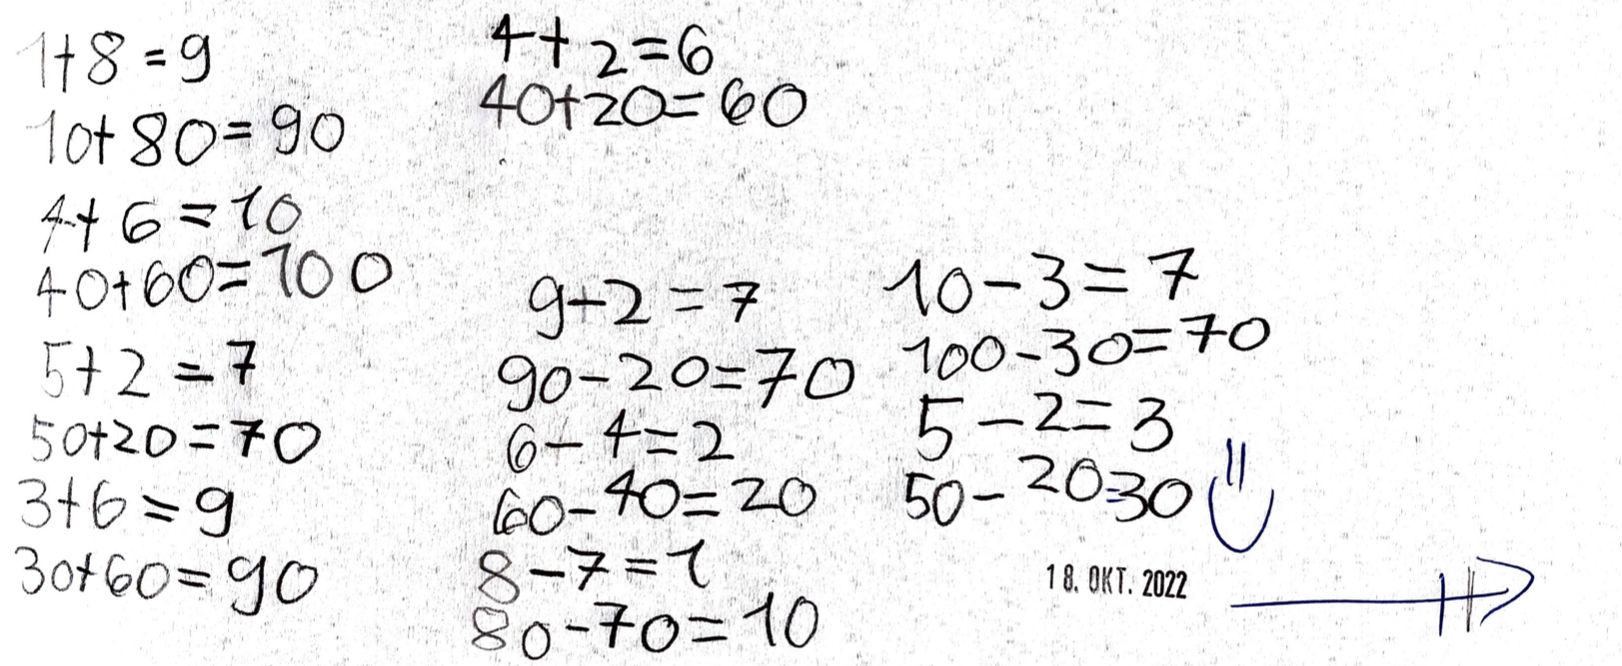 1+8=9
10+80=90
4+6=10
40+60=100
5+2=7
50+20=70
3+6=9
30+60=90
4+2=6
40+20=60
9+2=7
90-20=70
6-4=2
60-40=20
8-7=1
80-70=10
10-3=7
100-30=70
5-2=3
50-20=30
18. OKT. 2022